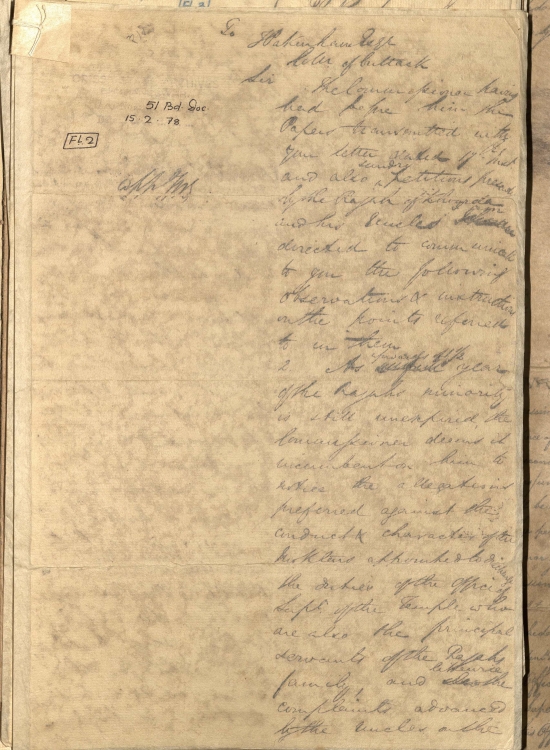 To
Esqr
Collr of Cuttack
Sir
The Commissioner having
had before him the
Papers transmitted with
your letter dated 17th Inst
and also sundry Petitions presented
by the Rajah of Khoorda
and his Uncles am
directed to communicate
to you the following
observations & instructions
on the points referred
to in them
2 As upwards of the year
of the Rajahs minority
is still unexpired the
Commissioner deems it
incumbent on him to
notice the allegations
preferred against the
conduct & character of the
Mookhtars appointed to discharge
the duties of the Office of
Supt of the Temple who
are also the principal
servants of the Rajahs
family, and likewise the
complaints advanced
by the uncles of the
51 Bd. Doc
15.2.78
Fl.2